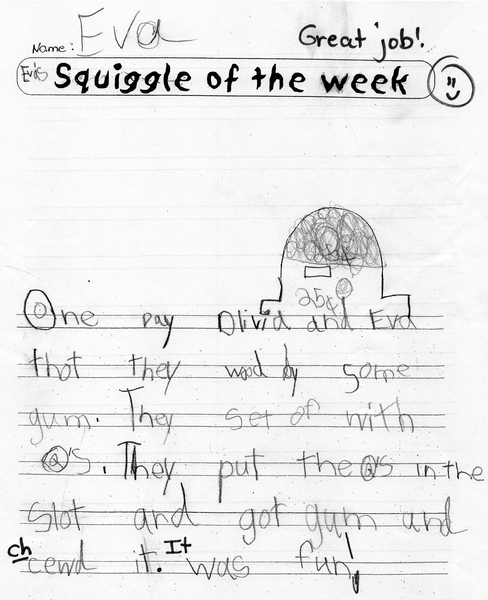 Name: Eva
Great job!
Eva's Squiggle of the week
25¢
One Day Olivia and Eva
thot they wood by some
gum. They set of with
Q's. They put the Q's in the
Slot and got gum and
ch cewd it. It was fun!